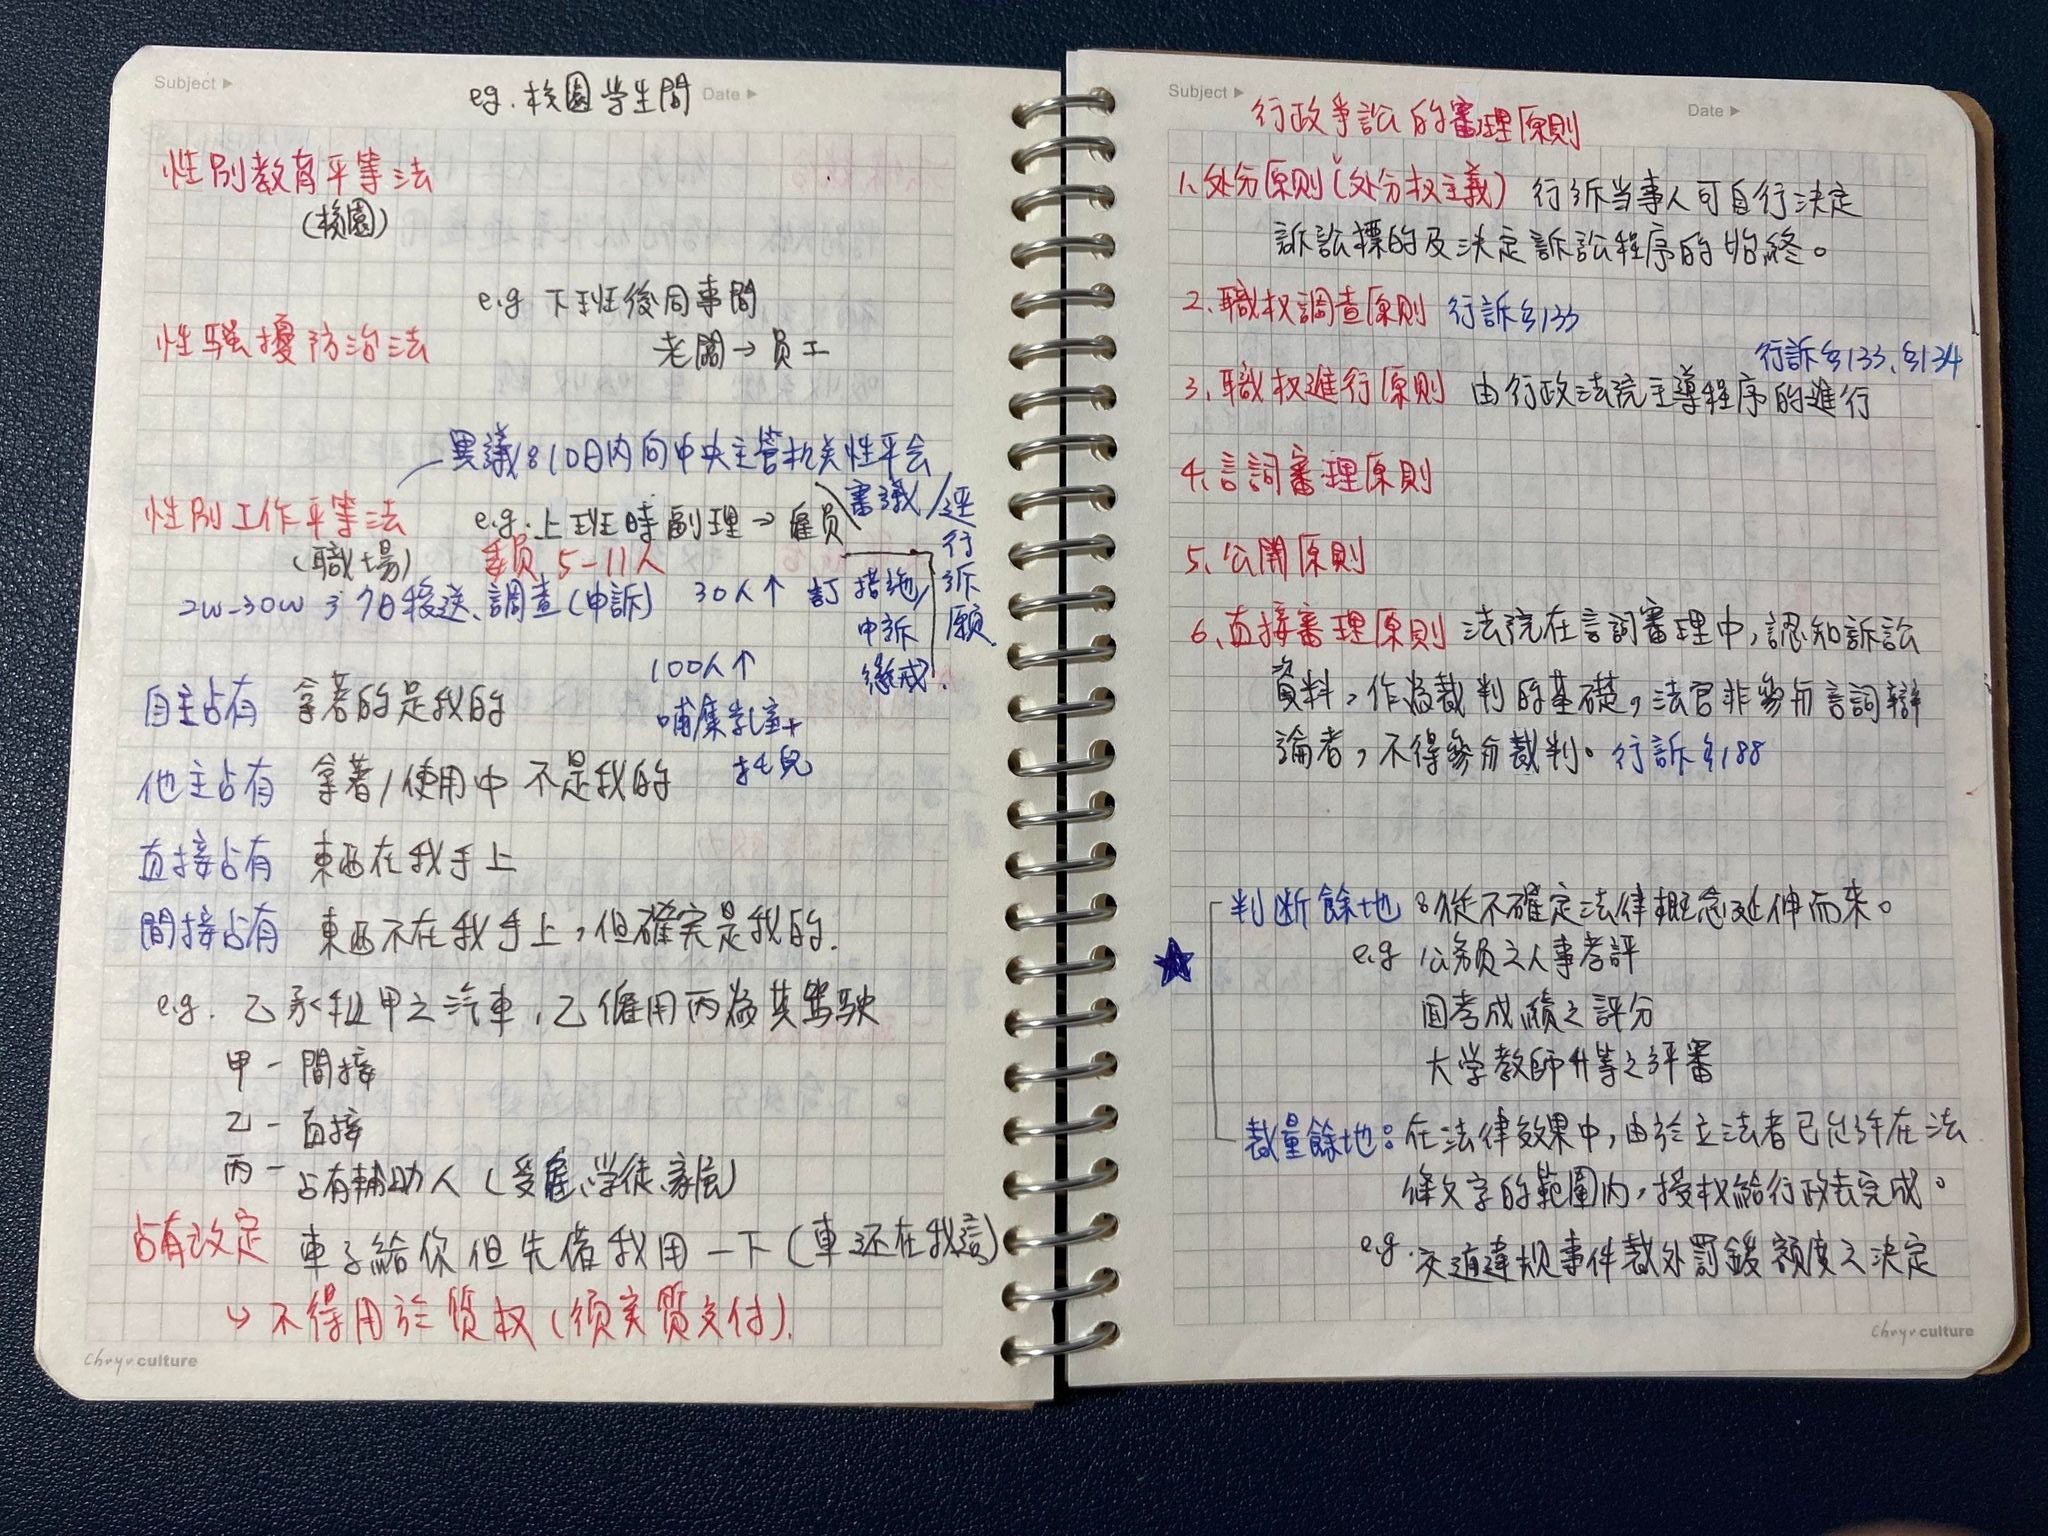 Subject ▶
Date ▶
eg. 校園学生間
性別教育平等法
(校園)
e.g 下班後同事間
性騷擾防治法
老闆→員工
異議:10日内向中央主管机关性平会
審議/逕行訴願
性別工作平等法
e.g. 上班時副理→雇員
(職場)
委員 5-11人
2W-30W 3'7日移送、調查(申訴)
30人↑ 訂 措施/
申訴
懲戒.
100人↑
哺集乳室+
托兒
自主占有 拿著的是我的
他主占有 拿著/使用中 不是我的
直接占有 東西在我手上
間接占有 東西不在我手上,但確実是我的.
e.g. 乙承租甲之汽車,乙僱用丙為其駕駛
甲-間接
乙-直接
丙-占有輔助人(受雇、学徒、家属)
占有改定 車子給你但先借我用一下(車还在我這)
↳不得用於質权(須实質交付).
Chuyu culture
Subject ▶
Date ▶
行政爭訟的審理原則
1、处分原則(处分权主義) 行訴当事人可自行決定
訴訟標的及決定訴訟程序的始終。
2、職权調查原則 行訴§133
行訴§133、§134
3、職权進行原則 由行政法院主導程序的進行
4、言詞審理原則
5、公開原則
6、直接審理原則 法院在言詞審理中,認知訴訟
資料,作為裁判的基礎,法官非參与言詞辯
論者,不得參与裁判。行訴§188
判断餘地:從不確定法律概念延伸而來。
e.g 公务員之人事考評
国考成績之評分
大学教師升等之評審
★
裁量餘地:在法律效果中,由於立法者已允許在法
條文字的範圍内,授权給行政去完成。
e.g. 交通違規事件裁处罰鍰額度之決定
Chuyu culture